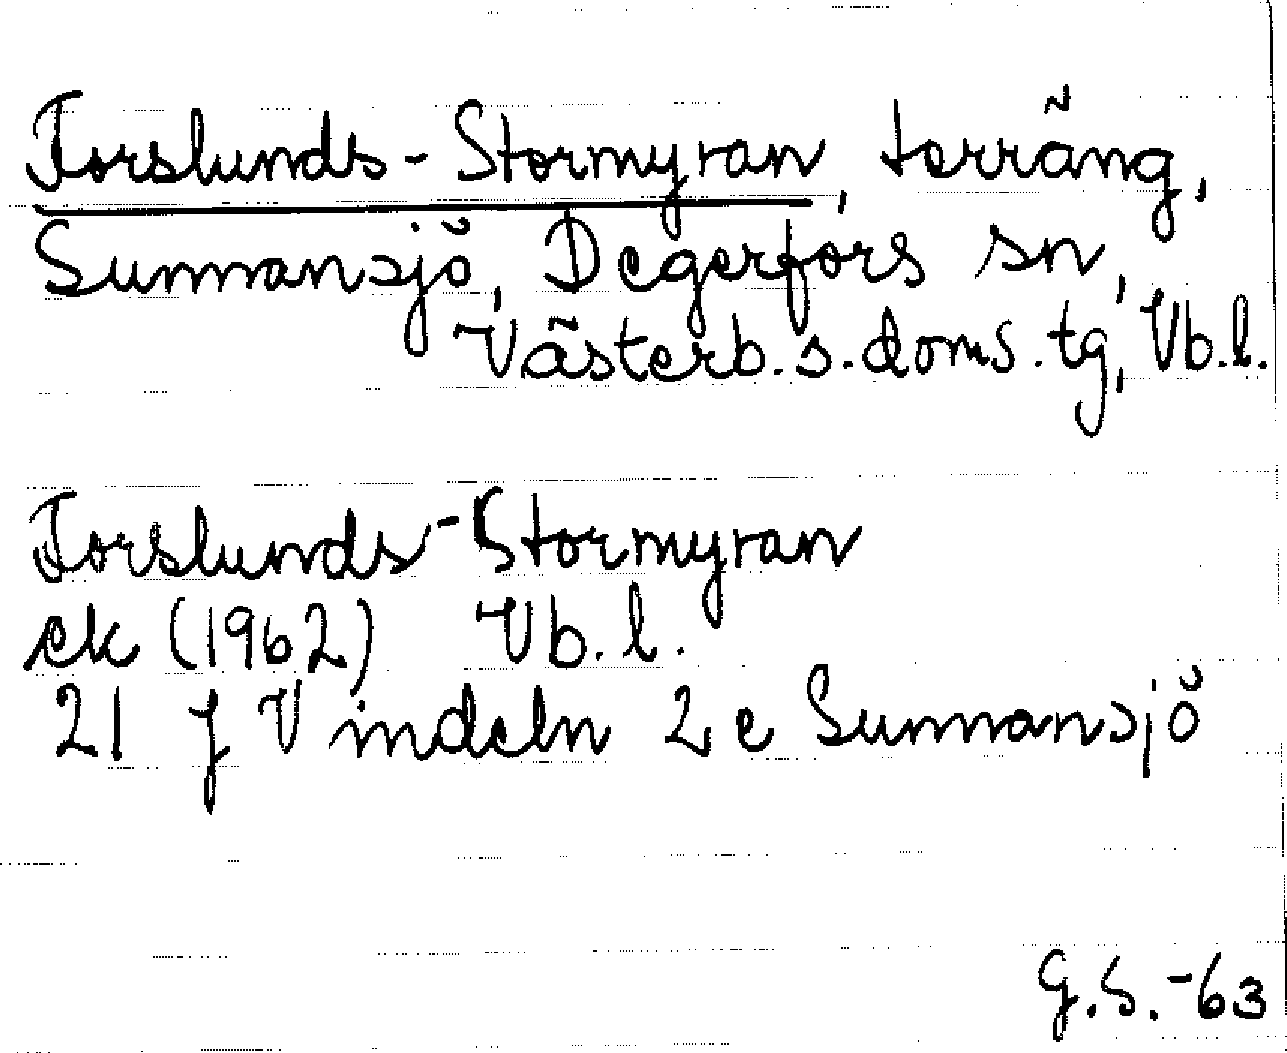 Forslunds-Stormyran, terräng,
Sunnansjö, Degerfors sn,
Västerb. s. doms. tg, Vb.l.
Forslunds-Stormyran
ek (1962) Vb.l.
21 J Vindeln 2e Sunnansjö
G.S.-63